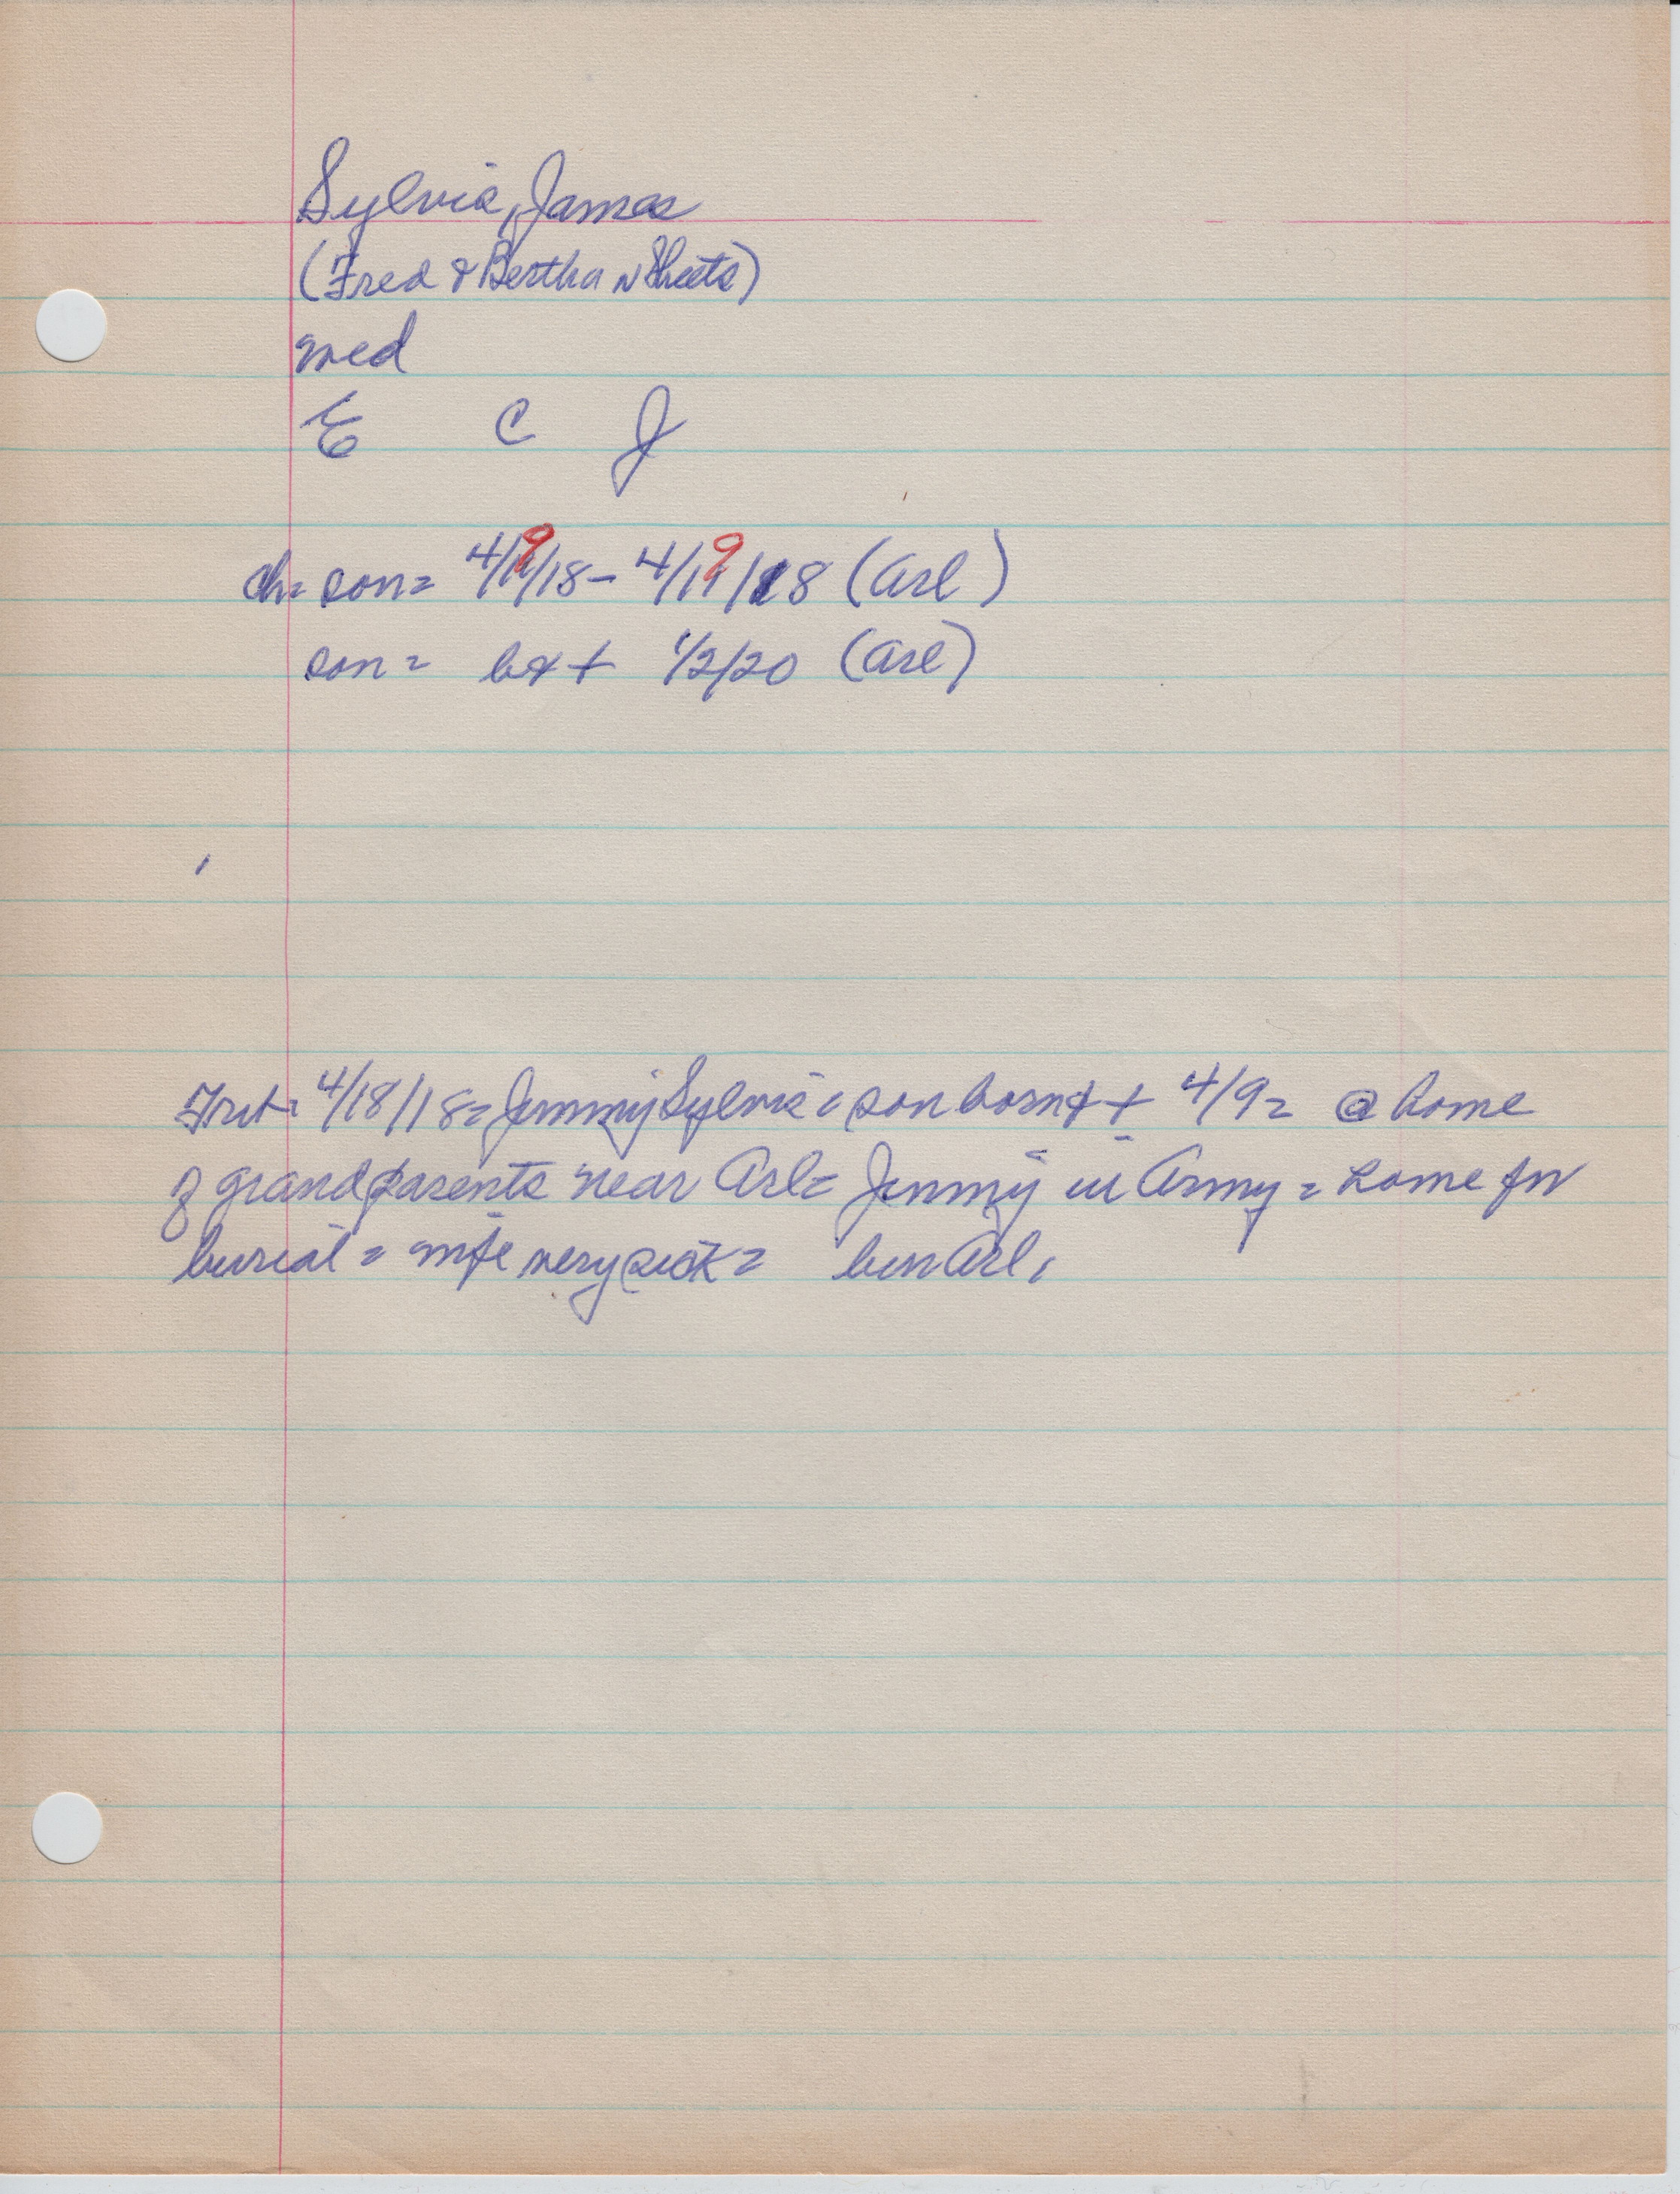 Sylvia, James
(Fred & Bertha N Sheets)
med
E C J
ch= son= 4/9/18 - 4/9/18 (Arl)
son = b & + 1/2/20 (Arl)
4/18/18= Jimmy Sylvia = son born & + 4/9= @ home
of grandparents near Arl= Jimmy in Army = home for
burial = wife very sick = bur Arl.